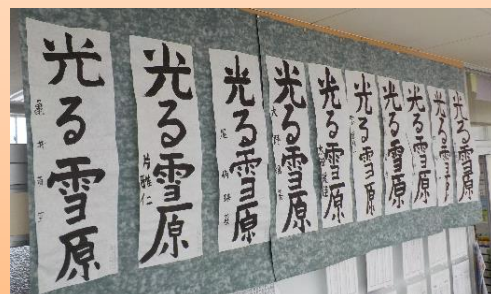 光る雪原
光る雪原
光る雪原
光る雪原
光る雪原
光る雪原
光る雪原
光る雪原
光る雪原
光る雪原